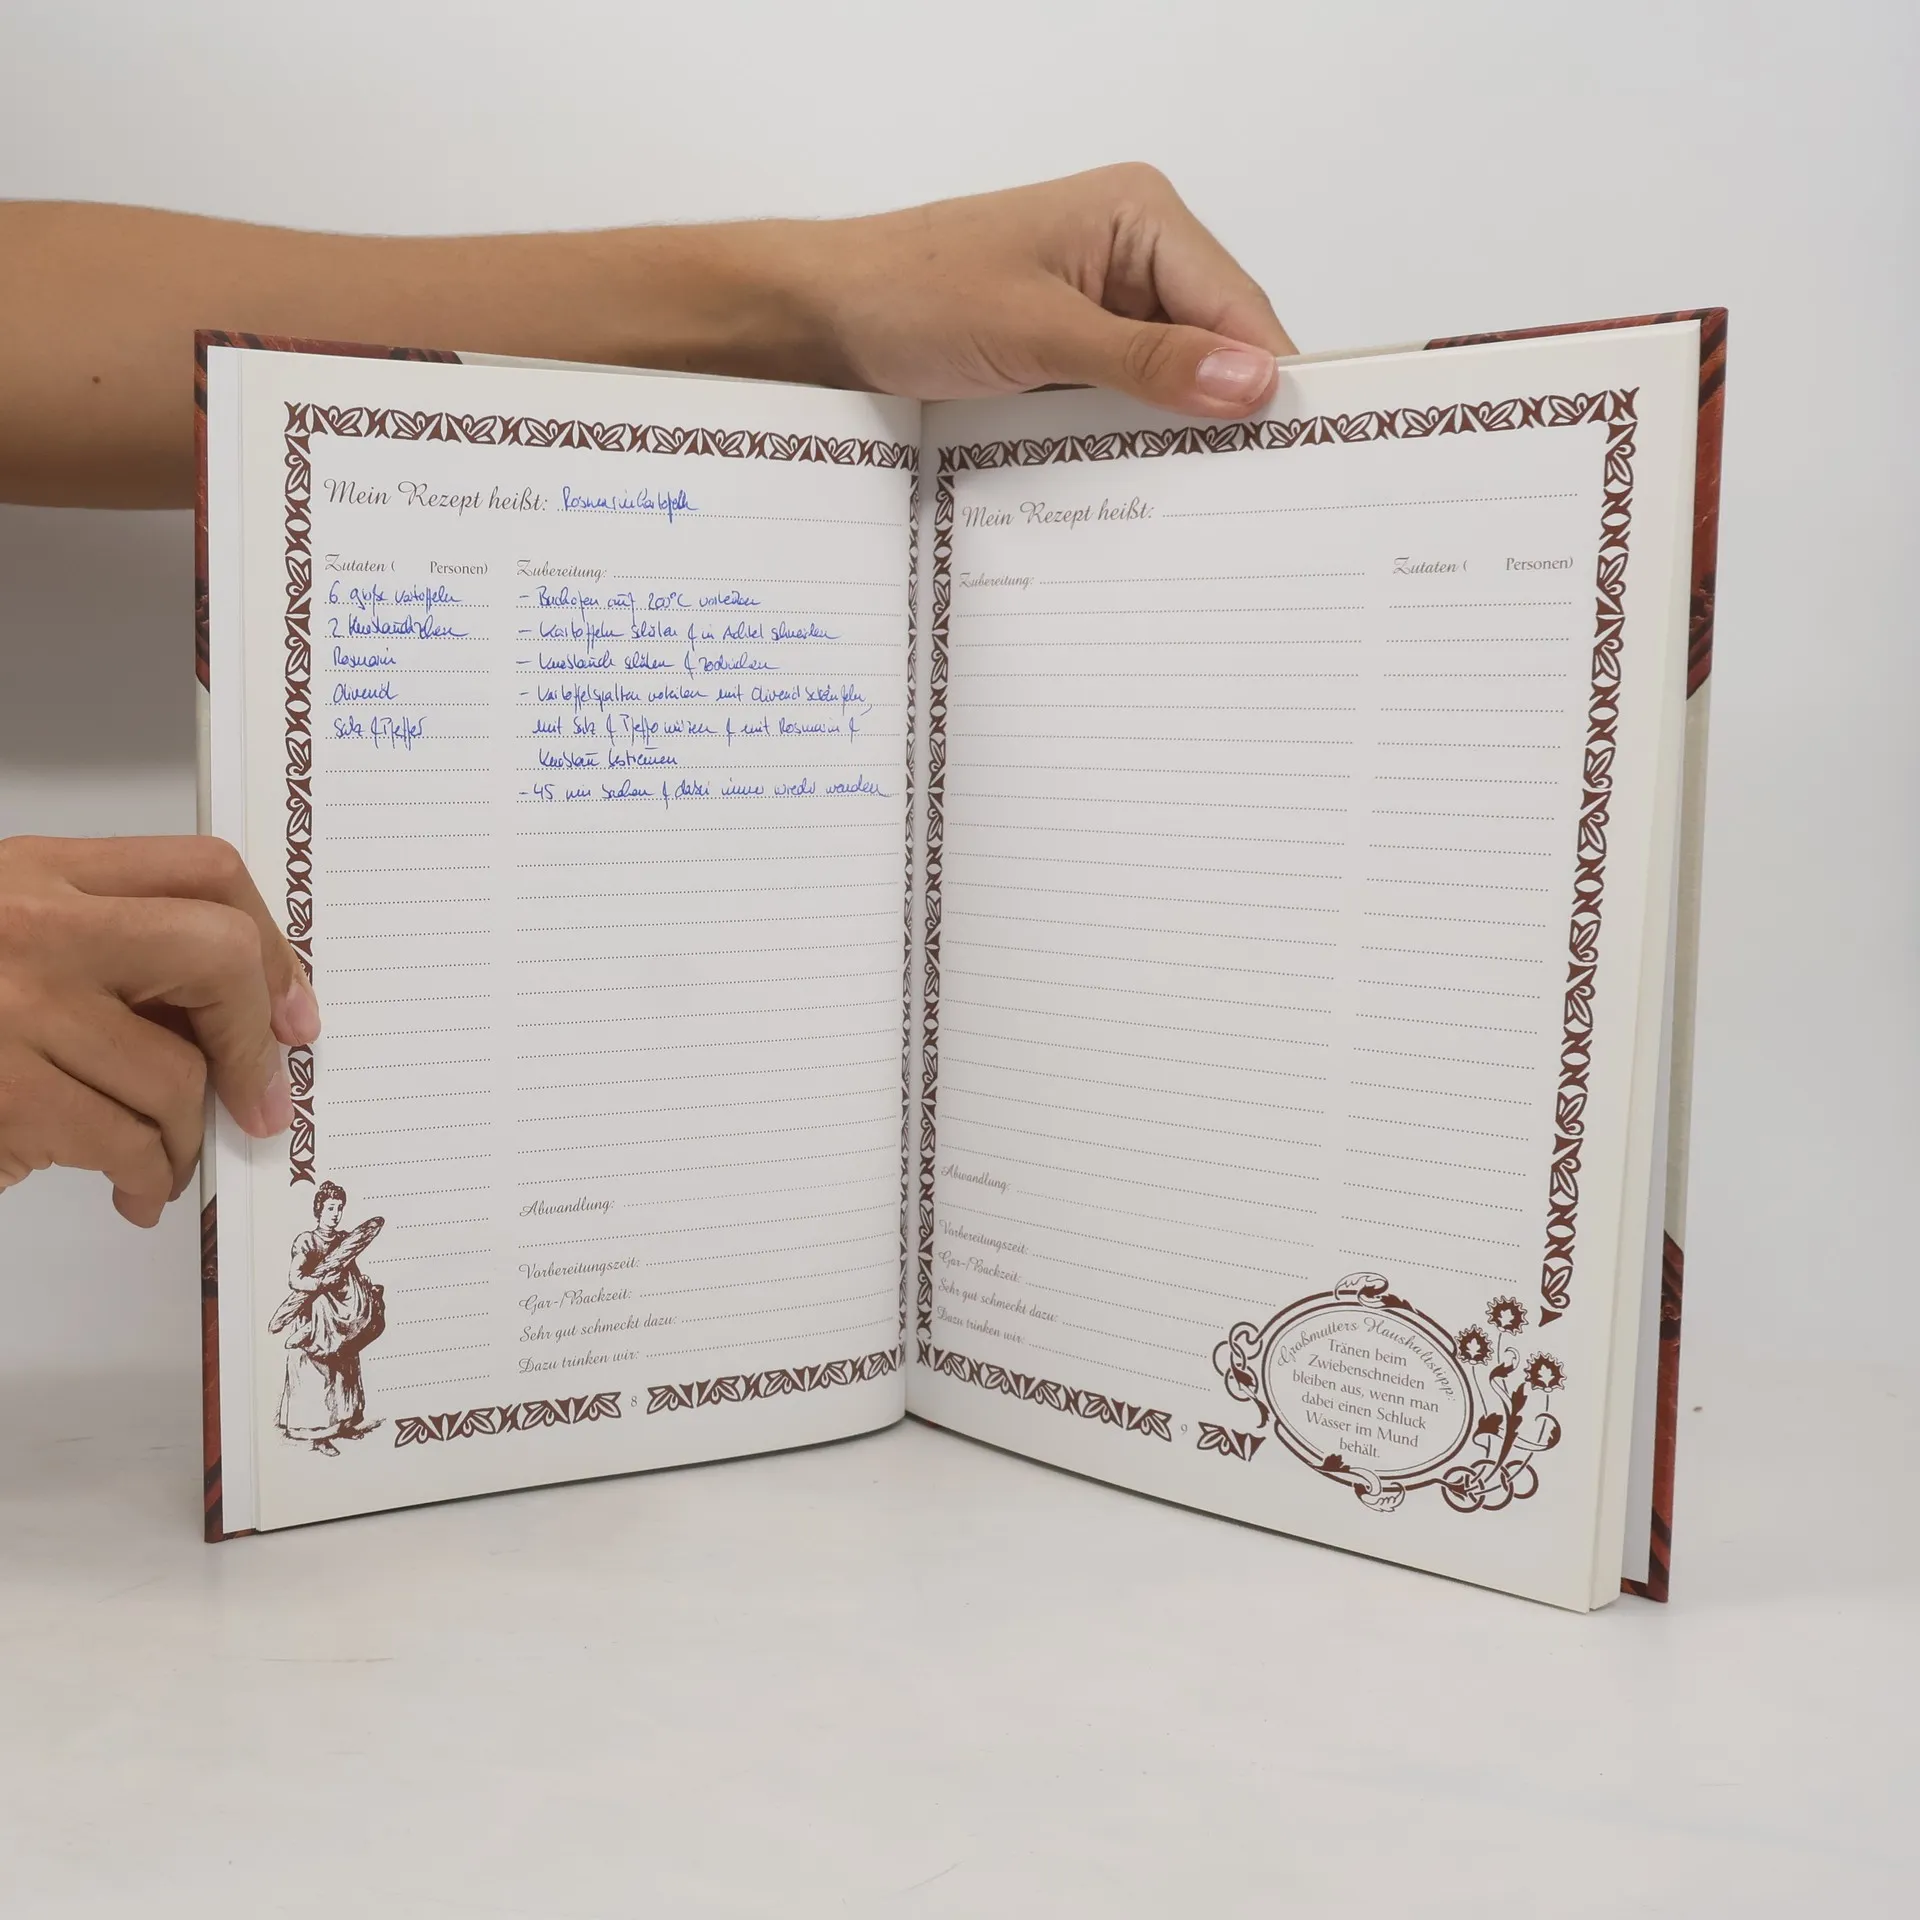 Mein Rezept heißt: Rosmarinkartoffeln
Zutaten ( Personen)
6 große Kartoffeln
2 Knoblauchzehen
Rosmarin
Olivenöl
Salz & Pfeffer
Zubereitung:
- Backofen auf 200°C vorheizen
- Kartoffeln schälen & in Achtel schneiden
- Knoblauch schälen & zerdrücken
- Kartoffelspalten verteilen mit Olivenöl beträufeln,
mit Salz & Pfeffer würzen & mit Rosmarin &
Knoblau bestreuen
- 45 min backen & dabei immer wieder wenden
Abwandlung:
Vorbereitungszeit:
Gar-/Backzeit:
Sehr gut schmeckt dazu:
Dazu trinken wir:
8
Mein Rezept heißt:
Zubereitung:
Zutaten ( Personen)
Abwandlung:
Vorbereitungszeit:
Gar-/Backzeit:
Sehr gut schmeckt dazu:
Dazu trinken wir:
9
Großmutters Haushaltstipp:
Tränen beim
Zwiebenschneiden
bleiben aus, wenn man
dabei einen Schluck
Wasser im Mund
behält.